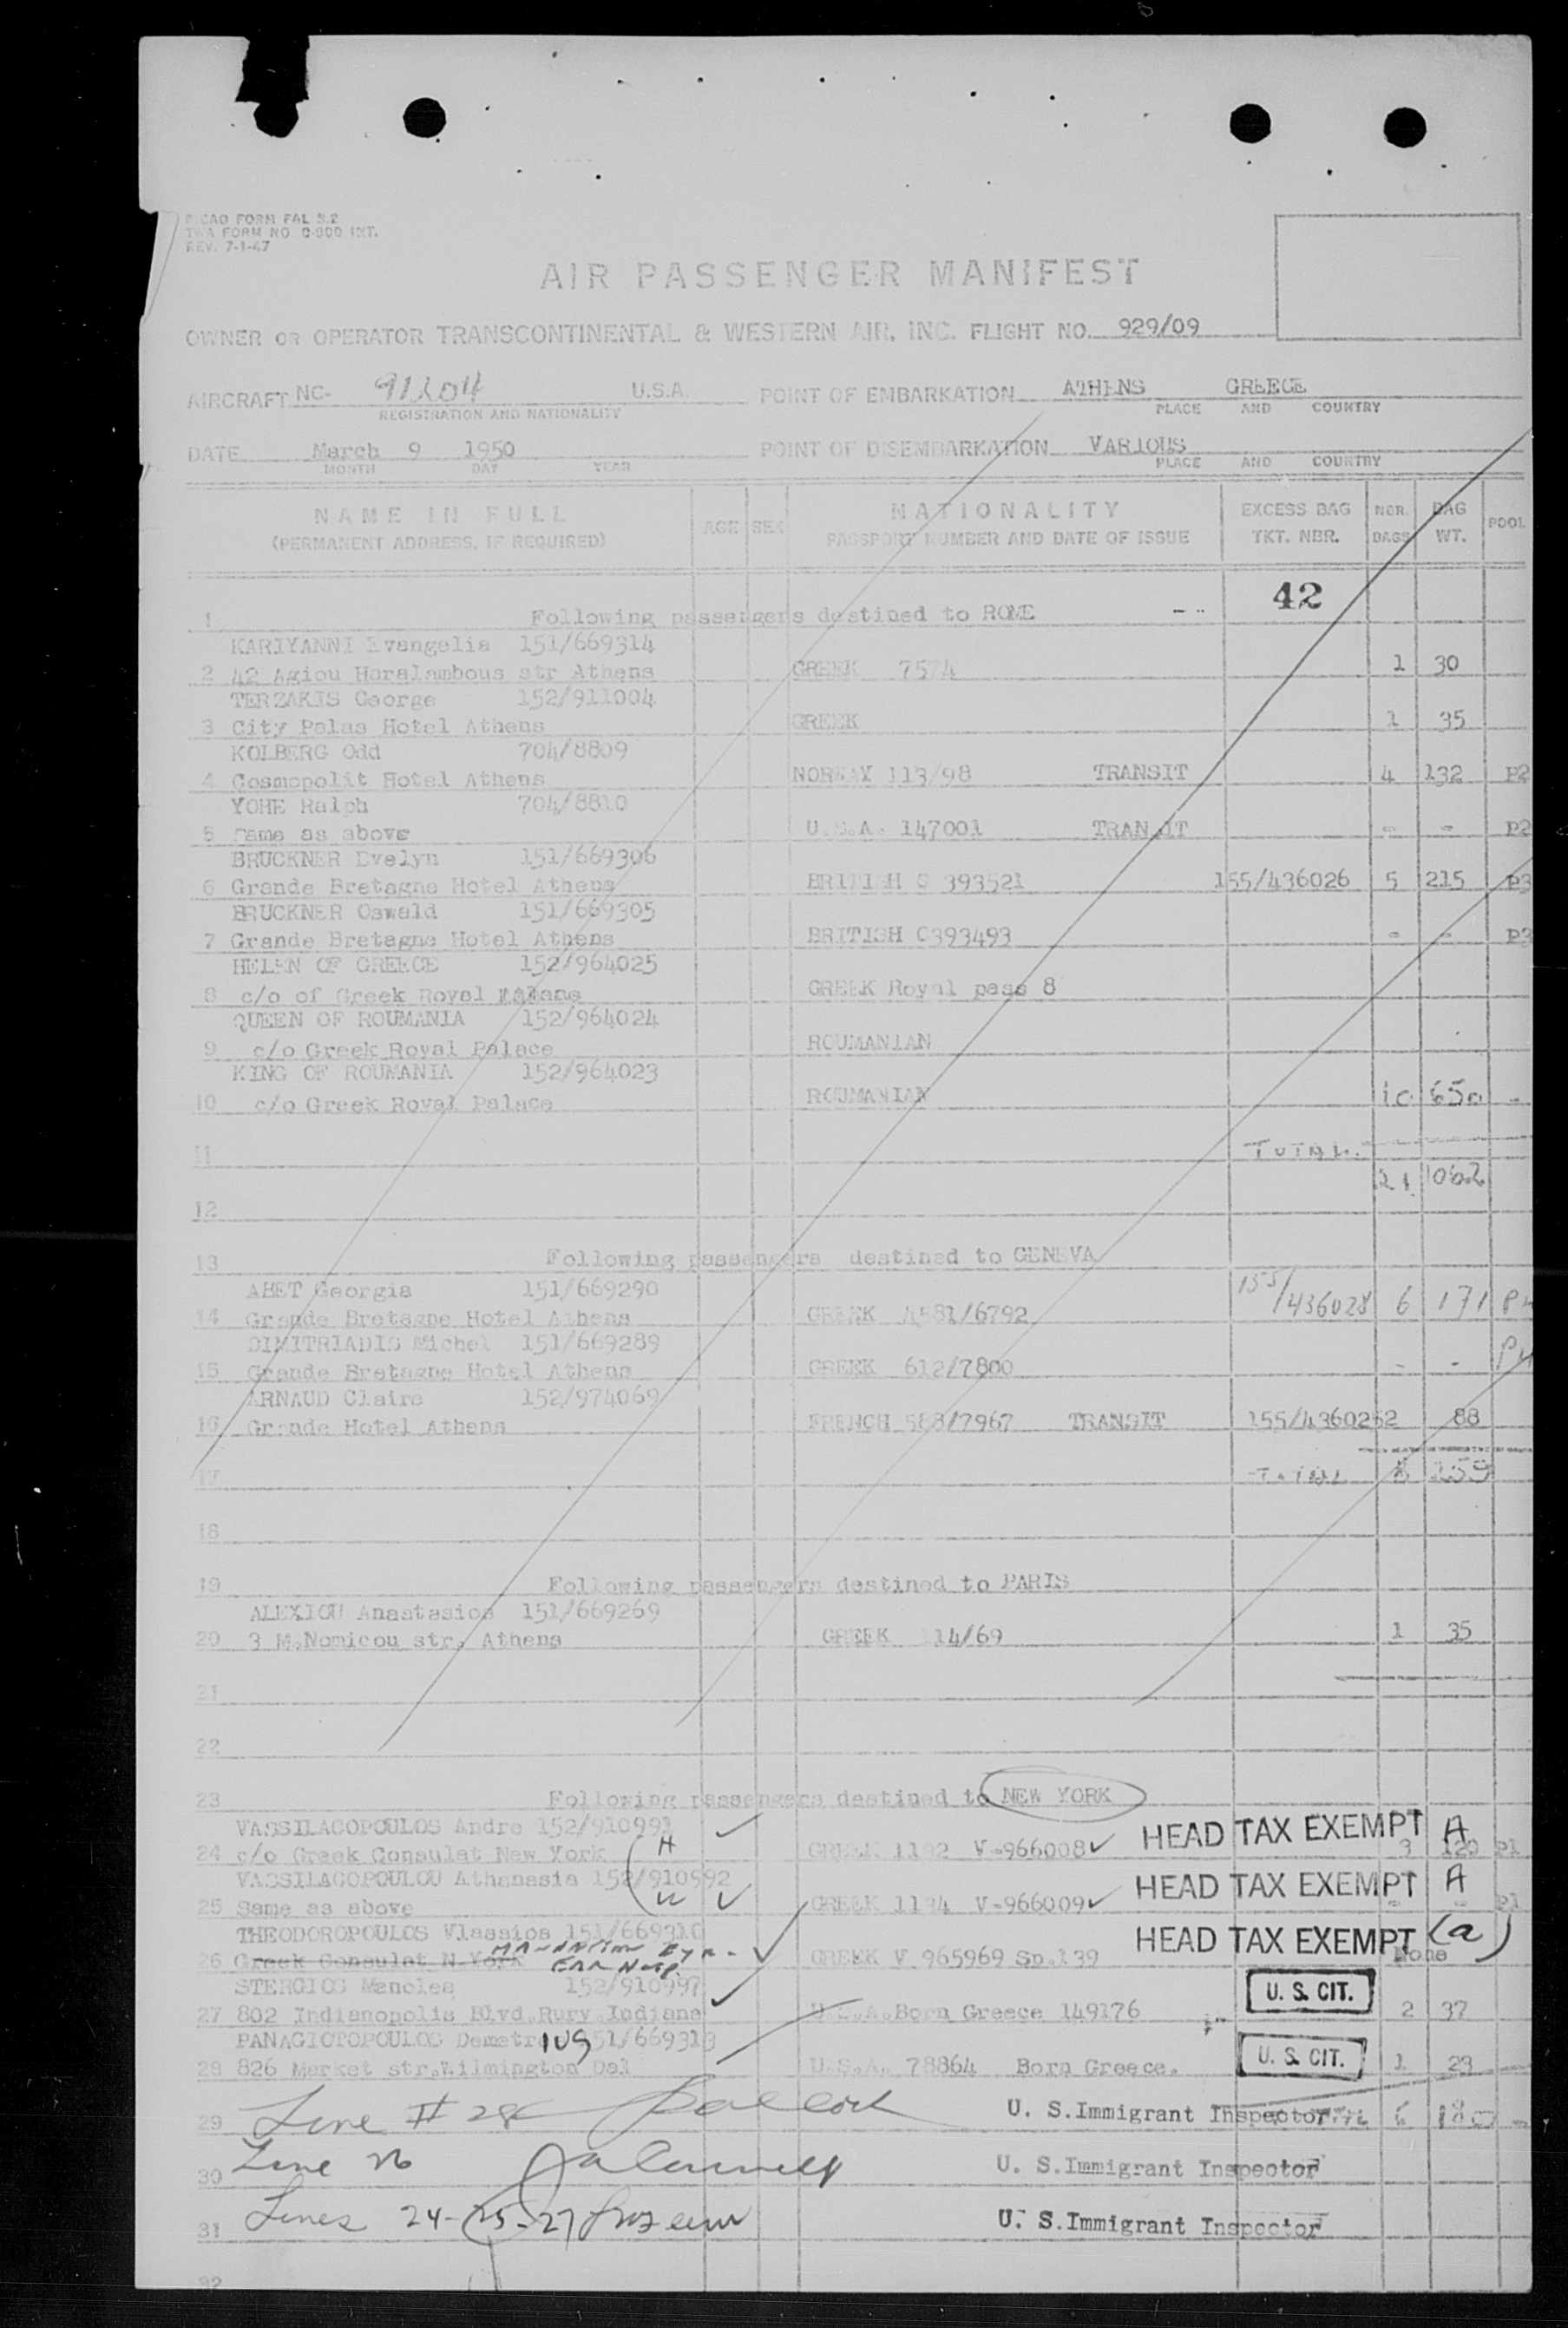 ICAO FORM FAL 3.2
TWA FORM NO C-800 INT.
REV. 7-1-47
AIR PASSENGER MANIFEST
OWNER OR OPERATOR TRANSCONTINENTAL & WESTERN AIR, INC. FLIGHT NO. 929/09
AIRCRAFT NC- 91204 U.S.A. POINT OF EMBARKATION ATHENS GREECE
REGISTRATION AND NATIONALITY PLACE AND COUNTRY
DATE March 9 1950 POINT OF DISEMBARKATION VARIOUS
MONTH DAY YEAR PLACE AND COUNTRY
NAME IN FULL AGE SEX NATIONALITY EXCESS BAG NBR. BAG POOL
(PERMANENT ADDRESS, IF REQUIRED) PASSPORT NUMBER AND DATE OF ISSUE TKT. NBR. BAGS WT.
42
1 Following passengers destined to ROME
KARIYANNI Evangelia 151/669314
2 42 Agiou Haralambous str Athens GREEK 7574 1 30
TERZAKIS George 152/911004
3 City Palas Hotel Athens GREEK 1 35
KOLBERG Odd 704/8809
4 Cosmopolit Hotel Athens NORWAY 113/98 TRANSIT 4 132 P2
YOHE Ralph 704/8810
5 Same as above U.S.A. 147001 TRANSIT - - P2
BRUCKNER Evelyn 151/669306
6 Grande Bretagne Hotel Athens BRITISH C 393521 155/436026 5 215 P3
BRUCKNER Oswald 151/669305
7 Grande Bretagne Hotel Athens BRITISH C393493 - - P3
HELEN OF GREECE 152/964025
8 c/o of Greek Royal Palace GREEK Royal pass 8
QUEEN OF ROUMANIA 152/964024
9 c/o Greek Royal Palace ROUMANIAN
KING OF ROUMANIA 152/964023
10 c/o Greek Royal Palace ROUMANIAN 10 650 -
11 TOTAL
21 1062
12
13 Following passengers destined to GENEVA
ABET Georgia 151/669290
14 Grande Bretagne Hotel Athens GREEK A581/6792 155/436028 6 171 P4
DIMITRIADIS Michel 151/669289
15 Grande Bretagne Hotel Athens GREEK 612/7800 - - P4
ARNAUD Claire 152/974069
16 Grande Hotel Athens FRENCH 588/7967 TRANSIT 155/4360252 88
17 TOTAL 8 259
18
19 Following passengers destined to PARIS
ALEXIOU Anastasios 151/669269
20 3 M.Nomicou str. Athens GREEK 114/69 1 35
21
22
23 Following passengers destined to NEW YORK
VASSILACOPOULOS Andre 152/910991
24 c/o Greek Consulat New York H GREEK 1102 V-966008 HEAD TAX EXEMPT A 3 120 P1
VASSILACOPOULOU Athanasia 152/910992
25 Same as above W GREEK 1134 V-966009 HEAD TAX EXEMPT A - - P1
THEODOROPOULOS Vlassios 151/669310
26 Greek Consulat N.York Manhattan Eye - Ear Hosp. GREEK V 965969 Sp.139 HEAD TAX EXEMPT (a) None
STERGIOS Manolea 152/910997
27 802 Indianopolis Blvd.Rury Indiana U.S.A.Born Greece 149176 U. S. CIT. 2 37
PANAGIOTOPOULOS Demetrius 151/669313
28 826 Market str.Wilmington Del U.S.A. 78864 Born Greece. U. S. CIT. 1 23
29 Line # 28 U. S.Immigrant Inspector 6 180 -
30 Line 26 U. S.Immigrant Inspector
31 Lines 24-25-27 U. S.Immigrant Inspector
32